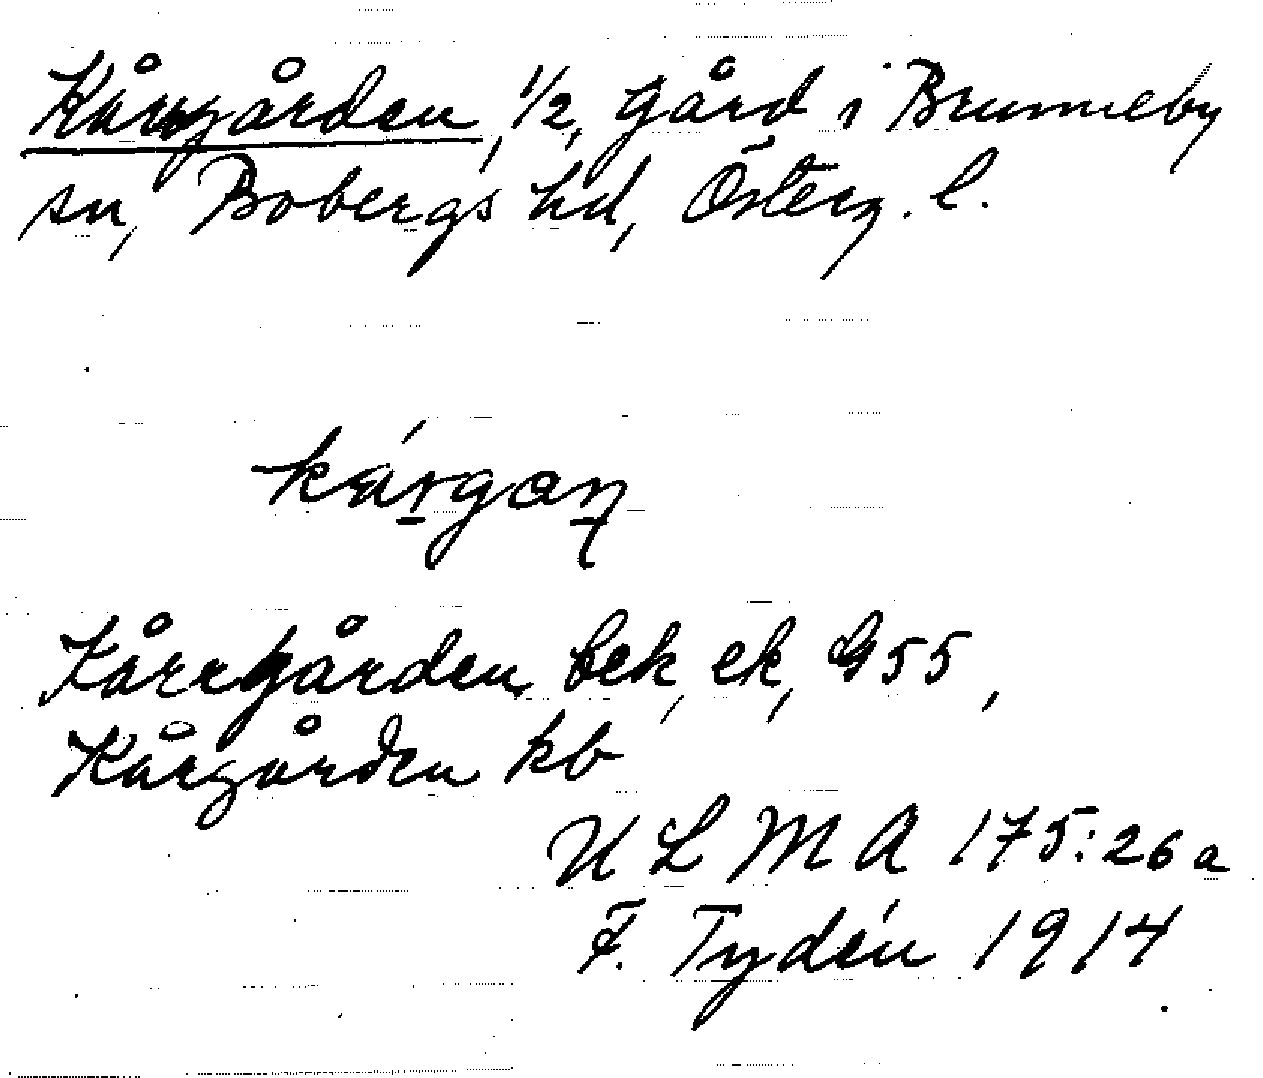 Kårgården, 1/2, gård i Brunneby
sn, Bobergs hd, Österg. l.
kárgaṉ
Kårrgården bek, ek, G55,
Kårgården kb
ULMA 175:26a
F. Tydén 1914